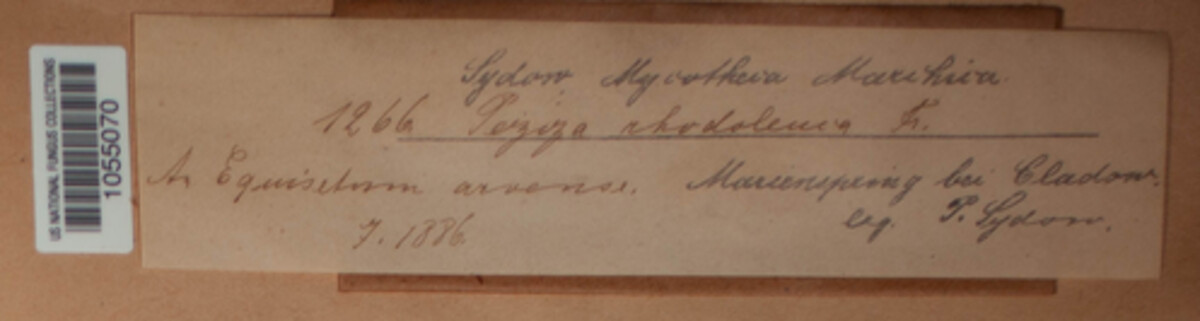 US NATIONAL FUNGUS COLLECTIONS
1055070
Sydow, Mycotheca Marchica.
1266 Peziza rhodoleuca Fr.
An Equisetum arvense. Marienspring bei Cladow.
7. 1886. leg. P. Sydow.